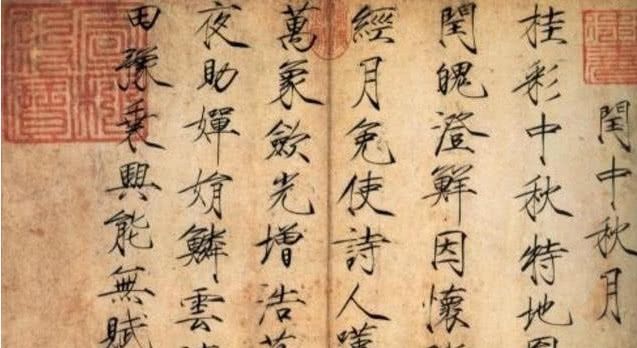 閏中秋月
桂彩中秋特地
閏魄澄鮮因懷
經月免使詩人嘆
萬象斂光增浩
夜助嬋娟鱗雲
田豫乘興能無賦